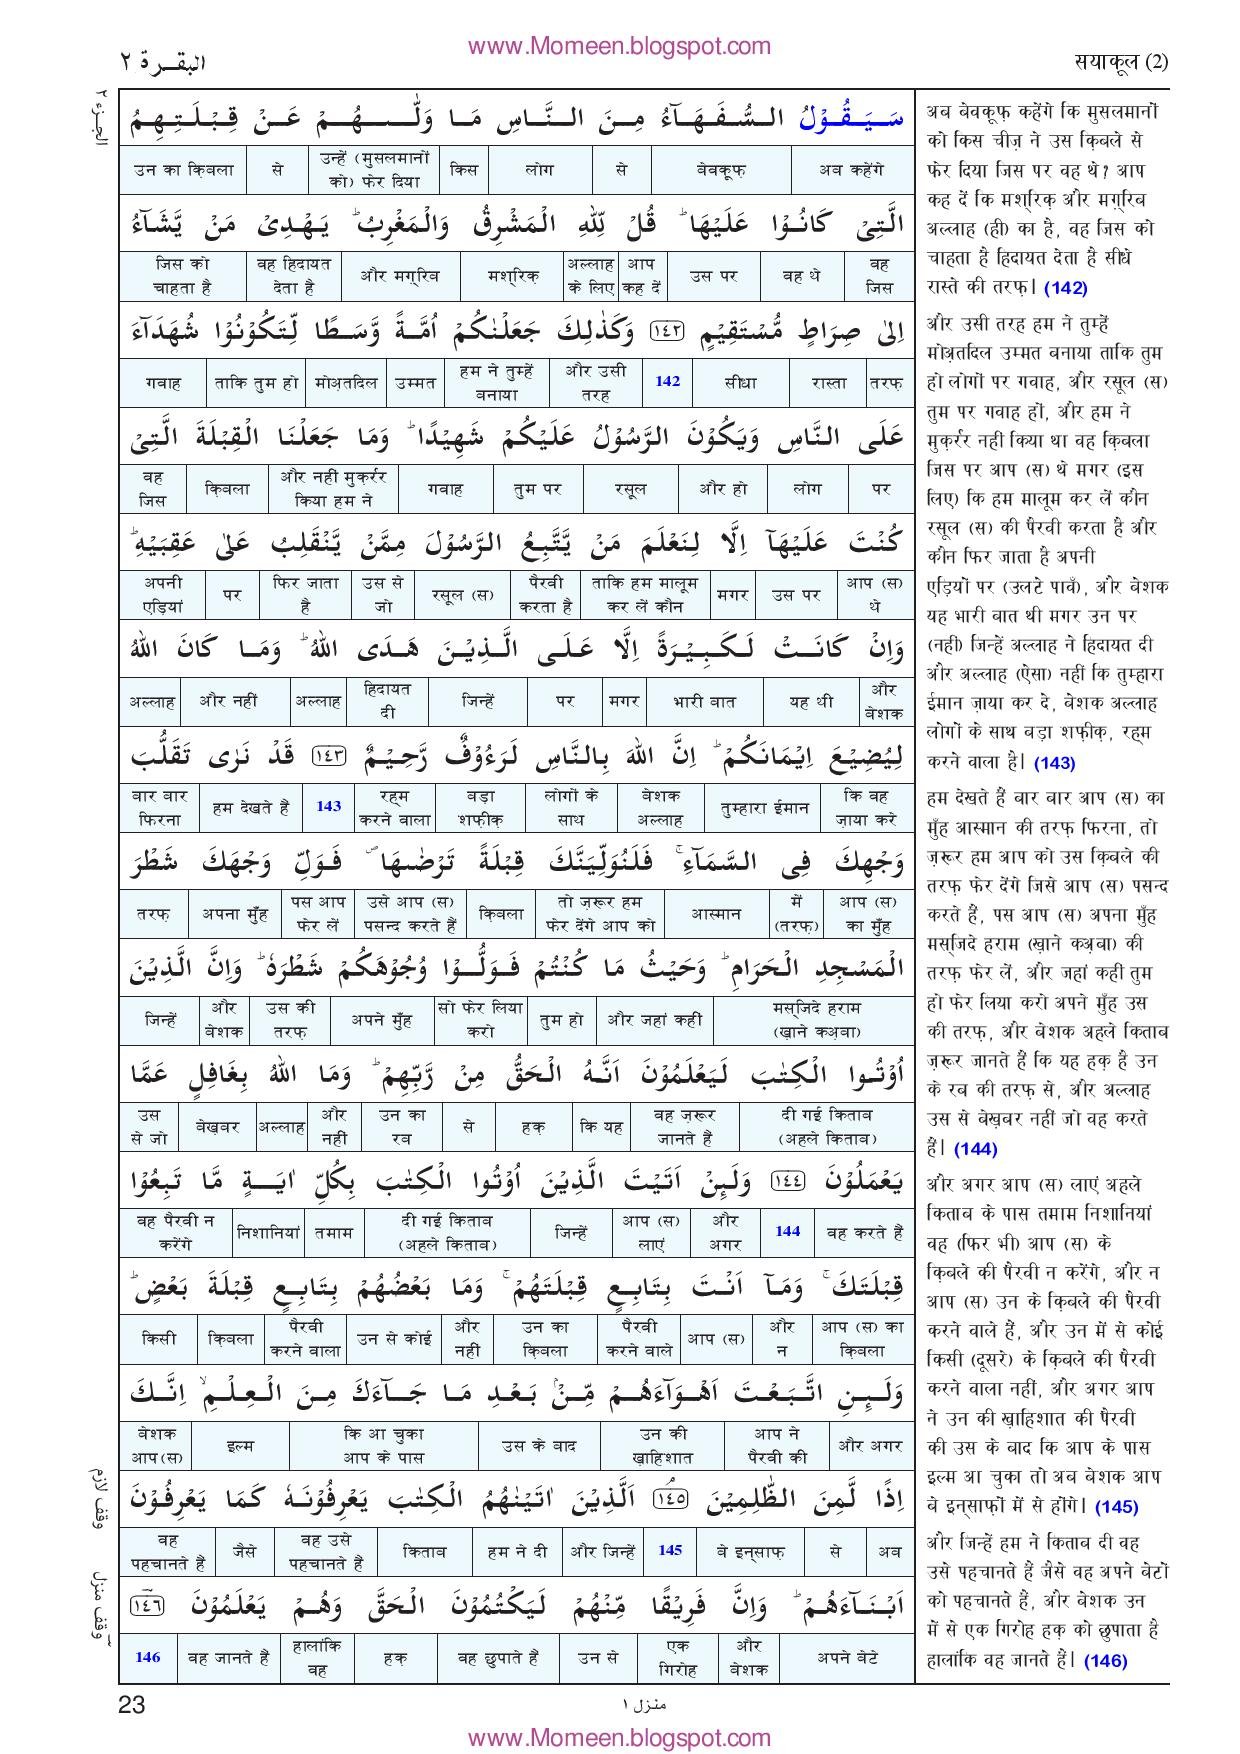 www.Momeen.blogspot.com
البقرة ٢
सयाकूल (2)
الجزء ٢
سَيَقُوْلُ السُّفَهَآءُ مِنَ النَّاسِ مَا وَلّٰىهُمْ عَنْ قِبْلَتِهِمُ
अब कहेंगे
बेवकूफ़
से
लोग
किस
उन्हें (मुसलमानों को) फेर दिया
से
उन का क़िबला
الَّتِیْ كَانُوْا عَلَيْهَا ؕ قُلْ لِّلّٰهِ الْمَشْرِقُ وَالْمَغْرِبُ ؕ يَهْدِیْ مَنْ يَّشَآءُ
वह जिस
वह थे
उस पर
आप कह दें
अल्लाह के लिए
मश्रिक़
और मग़्रिब
वह हिदायत देता है
जिस को चाहता है
اِلٰی صِرَاطٍ مُّسْتَقِيْمٍ ١٤٢ وَكَذٰلِكَ جَعَلْنٰكُمْ اُمَّةً وَّسَطًا لِّتَكُوْنُوْا شُهَدَآءَ
तरफ़
रास्ता
सीधा
142
और उसी तरह
हम ने तुम्हें बनाया
उम्मत
मोअ़तदिल
ताकि तुम हो
गवाह
عَلَی النَّاسِ وَيَكُوْنَ الرَّسُوْلُ عَلَيْكُمْ شَهِيْدًا ؕ وَمَا جَعَلْنَا الْقِبْلَةَ الَّتِیْ
पर
लोग
और हो
रसूल
तुम पर
गवाह
और नहीं मुक़र्रर किया हम ने
क़िबला
वह जिस
كُنْتَ عَلَيْهَآ اِلَّا لِنَعْلَمَ مَنْ يَّتَّبِعُ الرَّسُوْلَ مِمَّنْ يَّنْقَلِبُ عَلٰی عَقِبَيْهِ ؕ
आप (स) थे
उस पर
मगर
ताकि हम मालूम कर लें कौन
पैरवी करता है
रसूल (स)
उस से जो
फिर जाता है
पर
अपनी एड़ियां
وَاِنْ كَانَتْ لَكَبِيْرَةً اِلَّا عَلَی الَّذِيْنَ هَدَی اللّٰهُ ؕ وَمَا كَانَ اللّٰهُ
और बेशक
यह थी
भारी बात
मगर
पर
जिन्हें
हिदायत दी
अल्लाह
और नहीं
अल्लाह
لِيُضِيْعَ اِيْمَانَكُمْ ؕ اِنَّ اللّٰهَ بِالنَّاسِ لَرَءُوْفٌ رَّحِيْمٌ ١٤٣ قَدْ نَرٰی تَقَلُّبَ
कि वह ज़ाया करे
तुम्हारा ईमान
बेशक अल्लाह
लोगों के साथ
बड़ा शफ़ीक़
रहम करने वाला
143
हम देखते हैं
बार बार फिरना
وَجْهِكَ فِی السَّمَآءِ ۚ فَلَنُوَلِّيَنَّكَ قِبْلَةً تَرْضٰىهَا ۪ فَوَلِّ وَجْهَكَ شَطْرَ
आप (स) का मुँह
में (तरफ़)
आस्मान
तो ज़रूर हम फेर देंगे आप को
क़िबला
उसे आप (स) पसन्द करते हैं
पस आप फेर लें
अपना मुँह
तरफ़
الْمَسْجِدِ الْحَرَامِ ؕ وَحَيْثُ مَا كُنْتُمْ فَوَلُّوْا وُجُوْهَكُمْ شَطْرَهٗ ؕ وَاِنَّ الَّذِيْنَ
मस्जिदे हराम (ख़ाने कअ़बा)
और जहां कहीं
तुम हो
सो फेर लिया करो
अपने मुँह
उस की तरफ़
और बेशक
जिन्हें
اُوْتُوا الْكِتٰبَ لَيَعْلَمُوْنَ اَنَّهُ الْحَقُّ مِنْ رَّبِّهِمْ ؕ وَمَا اللّٰهُ بِغَافِلٍ عَمَّا
दी गई किताब (अहले किताब)
वह ज़रूर जानते हैं
कि यह
हक़
से
उन का रब
और नहीं
अल्लाह
बेख़बर
उस से जो
يَعْمَلُوْنَ ١٤٤ وَلَىِٕنْ اَتَيْتَ الَّذِيْنَ اُوْتُوا الْكِتٰبَ بِكُلِّ اٰيَةٍ مَّا تَبِعُوْا
वह करते हैं
144
और अगर
आप (स) लाएं
जिन्हें
दी गई किताब (अहले किताब)
तमाम
निशानियां
वह पैरवी न करेंगे
قِبْلَتَكَ ۚ وَمَآ اَنْتَ بِتَابِعٍ قِبْلَتَهُمْ ۚ وَمَا بَعْضُهُمْ بِتَابِعٍ قِبْلَةَ بَعْضٍ ؕ
आप (स) का क़िबला
और न
आप (स)
पैरवी करने वाले
उन का क़िबला
और नहीं
उन से कोई
पैरवी करने वाला
क़िबला
किसी
وَلَىِٕنِ اتَّبَعْتَ اَهْوَآءَهُمْ مِّنْۢ بَعْدِ مَا جَآءَكَ مِنَ الْعِلْمِ ۙ اِنَّكَ
और अगर
आप ने पैरवी की
उन की ख़ाहिशात
उस के बाद
कि आ चुका आप के पास
इल्म
बेशक आप(स)
وقف لازم
اِذًا لَّمِنَ الظّٰلِمِيْنَ ١٤٥ اَلَّذِيْنَ اٰتَيْنٰهُمُ الْكِتٰبَ يَعْرِفُوْنَهٗ كَمَا يَعْرِفُوْنَ
अब
से
बे इन्साफ़
145
और जिन्हें
हम ने दी
किताब
वह उसे पहचानते हैं
जैसे
वह पहचानते हैं
وقف منزل
اَبْنَآءَهُمْ ؕ وَاِنَّ فَرِيْقًا مِّنْهُمْ لَيَكْتُمُوْنَ الْحَقَّ وَهُمْ يَعْلَمُوْنَ ١٤٦
अपने बेटे
और बेशक
एक गिरोह
उन से
वह छुपाते हैं
हक़
हालांकि वह
वह जानते हैं
146
अब बेवकूफ़ कहेंगे कि मुसलमानों
को किस चीज़ ने उस क़िबले से
फेर दिया जिस पर वह थे? आप
कह दें कि मश्रिक़ और मग़्रिब
अल्लाह (ही) का है, वह जिस को
चाहता है हिदायत देता है सीधे
रास्ते की तरफ़। (142)
और उसी तरह हम ने तुम्हें
मोअ़तदिल उम्मत बनाया ताकि तुम
हो लोगों पर गवाह, और रसूल (स)
तुम पर गवाह हों, और हम ने
मुक़र्रर नहीं किया था वह क़िबला
जिस पर आप (स) थे मगर (इस
लिए) कि हम मालूम कर लें कौन
रसूल (स) की पैरवी करता है और
कौन फिर जाता है अपनी
एड़ियों पर (उलटे पावँ), और बेशक
यह भारी बात थी मगर उन पर
(नहीं) जिन्हें अल्लाह ने हिदायत दी
और अल्लाह (ऐसा) नहीं कि तुम्हारा
ईमान ज़ाया कर दे, बेशक अल्लाह
लोगों के साथ बड़ा शफ़ीक़, रहम
करने वाला है। (143)
हम देखते हैं बार बार आप (स) का
मुँह आस्मान की तरफ़ फिरना, तो
ज़रूर हम आप को उस क़िबले की
तरफ़ फेर देंगे जिसे आप (स) पसन्द
करते हैं, पस आप (स) अपना मुँह
मस्जिदे हराम (ख़ाने कअ़बा) की
तरफ़ फेर लें, और जहां कहीं तुम
हो फेर लिया करो अपने मुँह उस
की तरफ़, और बेशक अहले किताब
ज़रूर जानते हैं कि यह हक़ है उन
के रब की तरफ़ से, और अल्लाह
उस से बेख़बर नहीं जो वह करते
हैं। (144)
और अगर आप (स) लाएं अहले
किताब के पास तमाम निशानियां
वह (फिर भी) आप (स) के
क़िबले की पैरवी न करेंगे, और न
आप (स) उन के क़िबले की पैरवी
करने वाले हैं, और उन में से कोई
किसी (दूसरे) के क़िबले की पैरवी
करने वाला नहीं, और अगर आप
ने उन की ख़ाहिशात की पैरवी
की उस के बाद कि आप के पास
इल्म आ चुका तो अब बेशक आप
बे इन्साफ़ों में से होंगे। (145)
और जिन्हें हम ने किताब दी वह
उसे पहचानते हैं जैसे वह अपने बेटों
को पहचानते हैं, और बेशक उन
में से एक गिरोह हक़ को छुपाता है
हालांकि वह जानते हैं। (146)
23
منزل ١
www.Momeen.blogspot.com